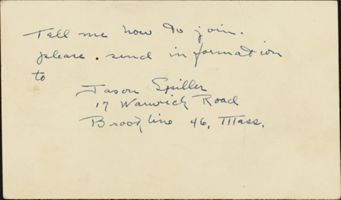 Tell me how to join.
please. send information
to
Jason Spiller
17 Warwick Road
Brookline 46, Mass.